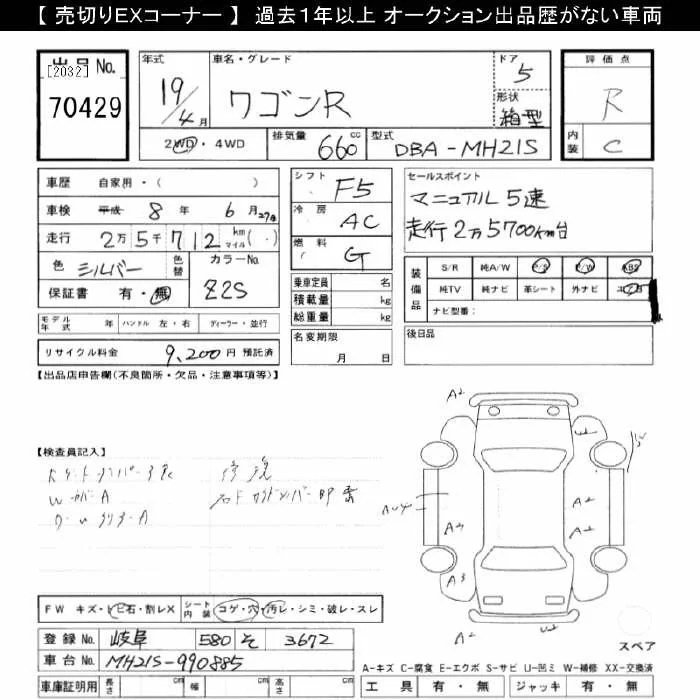 【 売切りEXコーナー 】 過去1年以上 オークション出品歴がない車両
出品No.
[2032]
70429
年式
19/4月
車名・グレード
ワゴンR
ドア
5
形状
箱型
評価点
R
内装
C
2WD・4WD
排気量
660cc
型式
DBA-MH21S
車歴 自家用・( )
車検 平成 8年 6月 27日
走行 2万5千712 km マイル ( ・ )
色 シルバー 色替 カラーNo. Z2S
保証書 有・無
シフト F5
冷房 AC
燃料 G
乗車定員 名
積載量 kg
総重量 kg
セールスポイント
マニュアル5速
走行2万5700km台
装備品
S/R 純A/W P/S P/W ABS
純TV 純ナビ 革シート 外ナビ
ナビ型番:
モデル年式 年 ハンドル 左・右 ディーラー・並行
名変期限 月 日
後日品
リサイクル料金 9,200円 預託済
【出品店申告欄(不良箇所・欠品・注意事項等)】
【検査員記入】
A2
A2
A2
A3
A2
A2
FW キズ・トビ石・割レX シート内装 コゲ・穴・汚レ・シミ・破レ・スレ
登録No. 岐阜 580 そ 3672
車台No. MH21S-990885
車庫証明用 長さ cm 幅 cm 高さ cm
スペア
A-キズ C-腐食 E-エクボ S-サビ U-凹ミ W-補修 XX-交換済
工具 有・無 ジャッキ 有・無